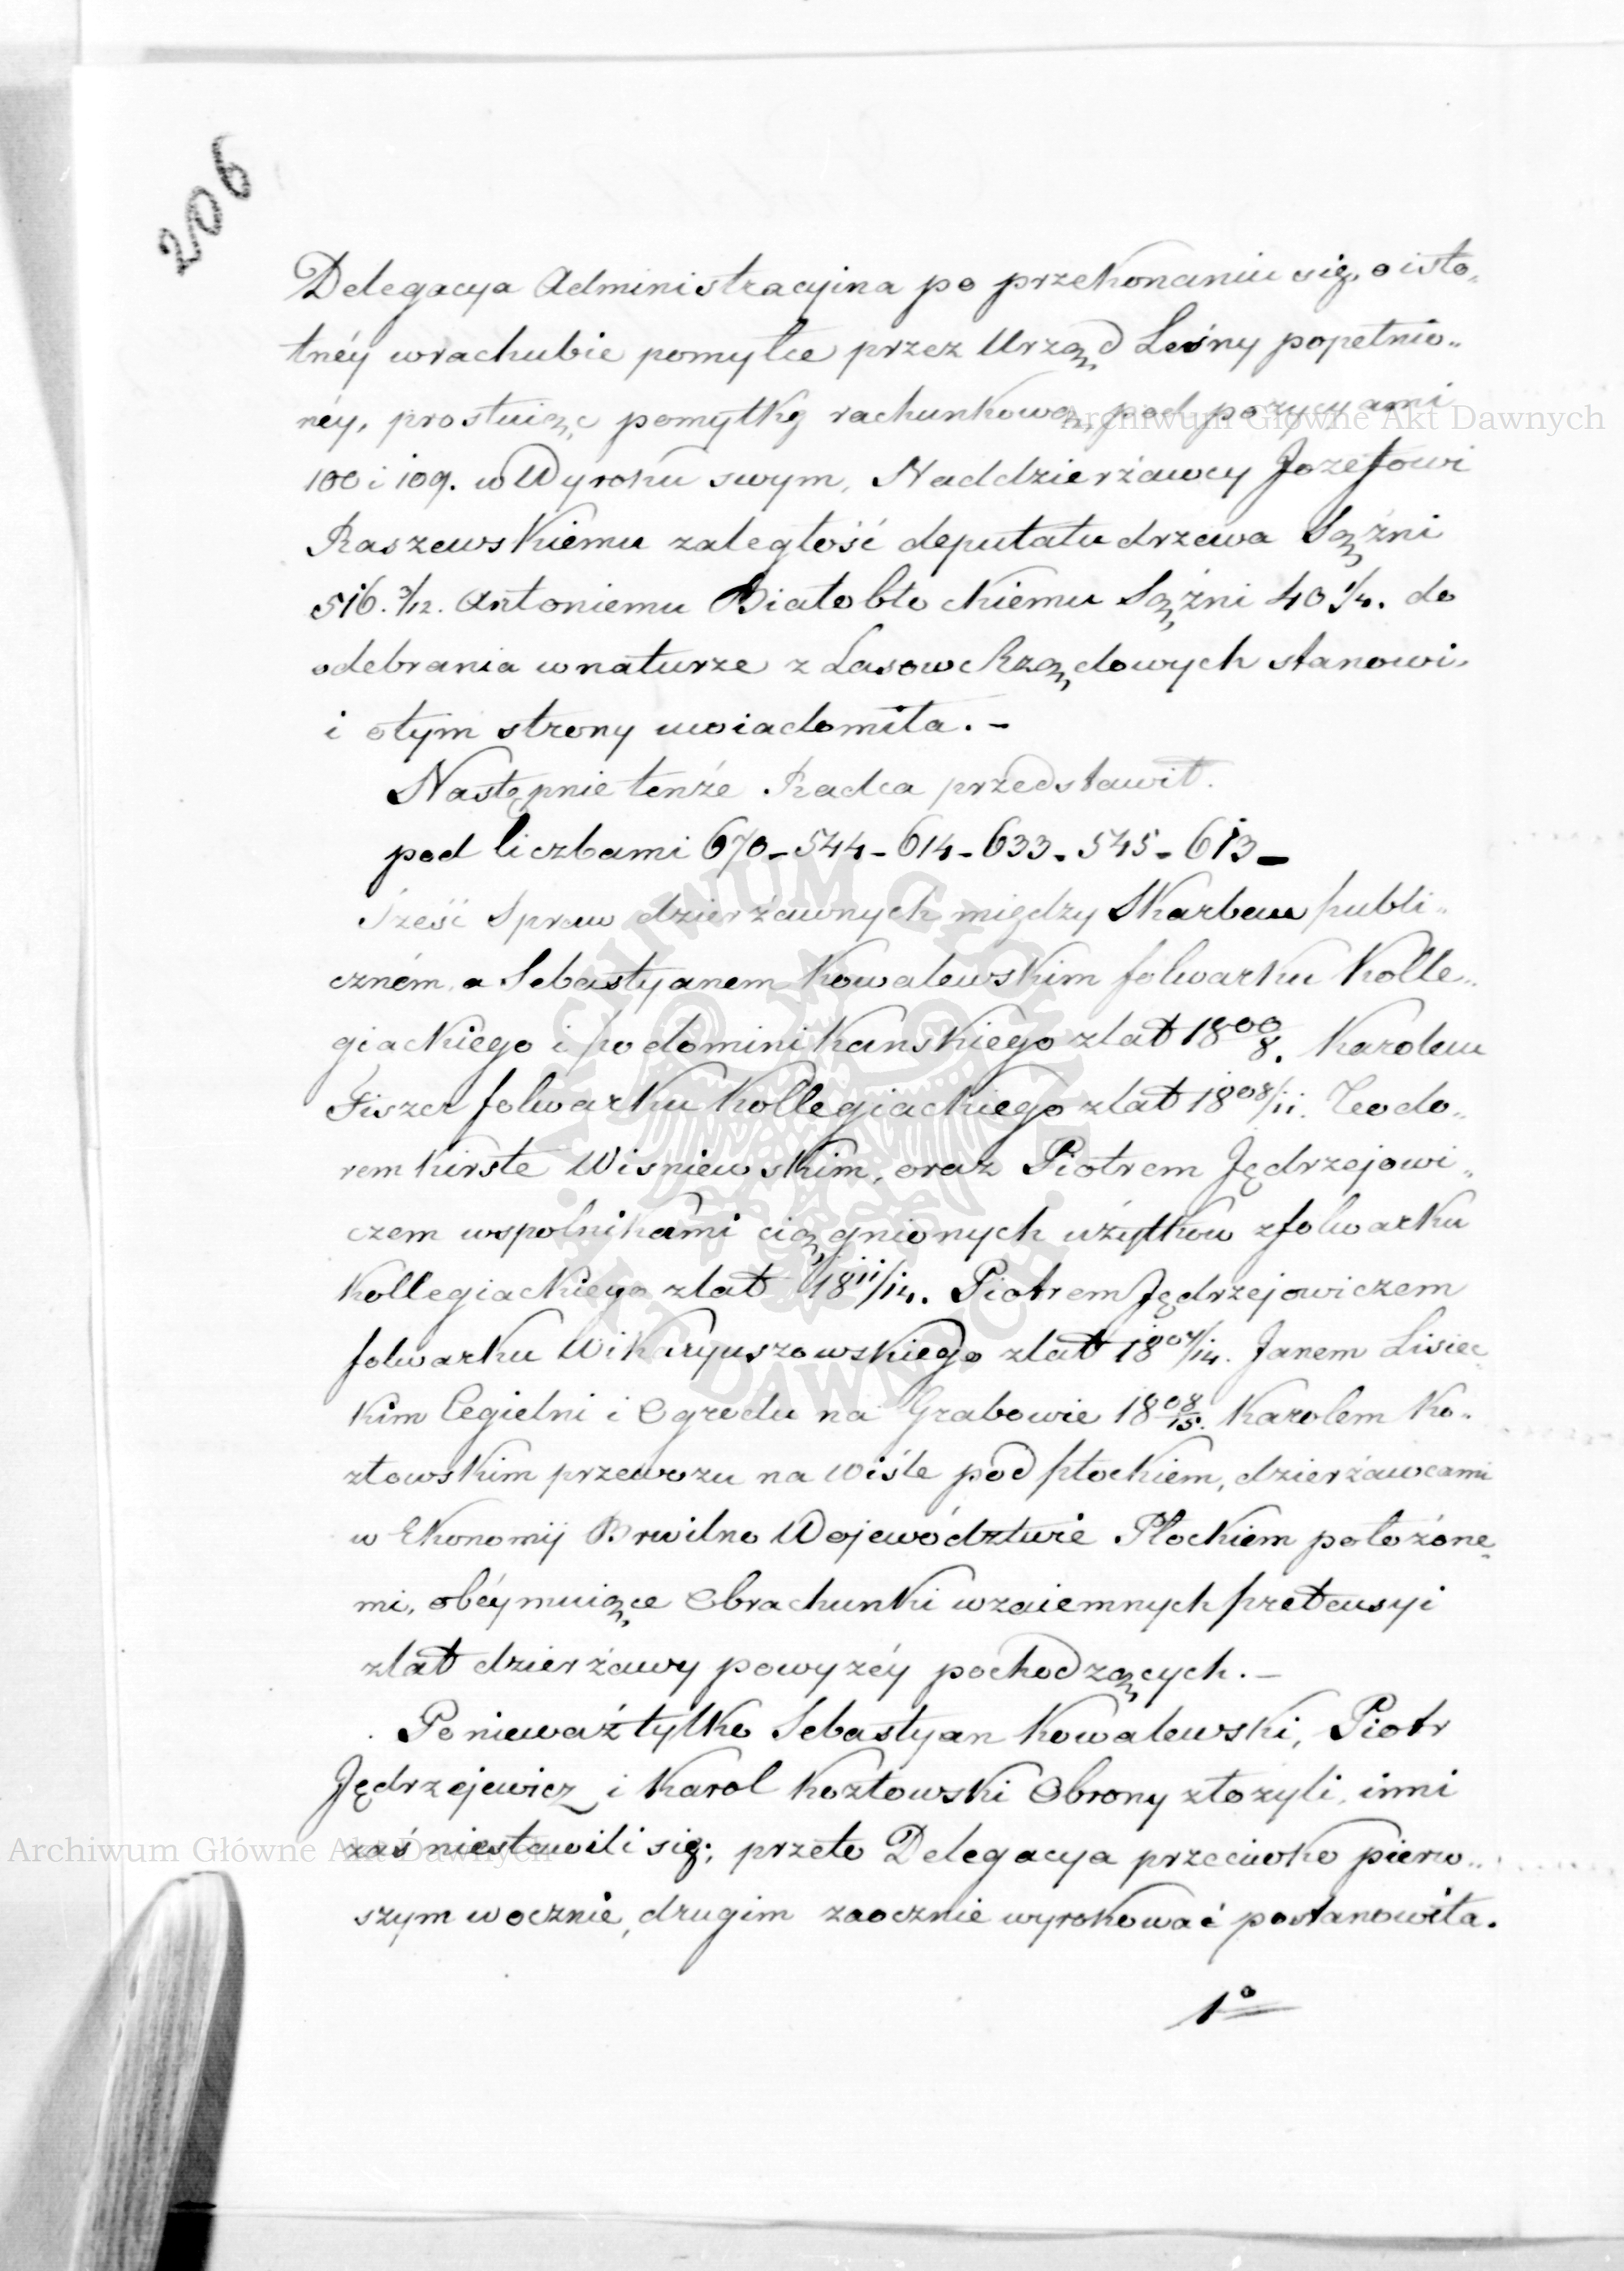 206
Delegacya Administracyina po przekonaniu się, o isto„
tnéy w rachubie pomyłce przez Urząd Leśny popełnio„
néy, prostuiąc pomyłkę rachunkową, pod pozycyami
100 i 109. w Wyroku swym, Naddzierżawcy Jozefowi
Raszewskiemu zaległość deputatu drzewa Sążni
516. 3/12. Antoniemu Białobłockiemu Sążni 40 1/4. do
odebrania w naturze z Lasow Rządowych stanowi,
i o tym strony uwiadomiła. –
Następnie tenże Radca przedstawił.
pod liczbami 670 – 544 – 614 – 633 – 545 – 613 –
Sześć Spraw dzierżawnych między Skarbem publi„
czném, a Sebastyanem Kowalewskim folwarku Kolle„
giackiego i podominikanskiego z lat 1800/8. Karolem
Fiszer folwarku Kollegiackiego z lat 1808/11. Teodo„
rem Kirste Wisniewskim, oraz Piotrem Jędrzejowi„
czem wspolnikami ciągnionych użytkow z folwarku
Kollegiackiego z lat 1811/14. Piotrem Jędrzejowiczem
folwarku Wikaryuszowskiego z lat 1807/14. Janem Lisiec„
kim Cegielni i Ogrodu na Grabowie 1808/15. Karolem Ko„
złowskim przewozu na Wiśle pod Płockiem, dzierżawcami
w Ekonomij Brwilno Województwie Płockiem położone„
mi, obéymuiące Obrachunki wzaiemnych pretensyi
z lat dzierżawy powyżéy pochodzących. –
Ponieważ tylko Sebastyan Kowalewski, Piotr
Jędrzejewicz i Karol Kozłowski Obrony złożyli, inni
zaś niestawili się; przeto Delegacya przeciwko pierw„
szym w ocznie, drugim zaocznie wyrokować postanowiła.
1°
Archiwum Główne Akt Dawnych
Archiwum Główne Akt Dawnych
ARCHIWUM GŁÓWNE AKT DAWNYCH